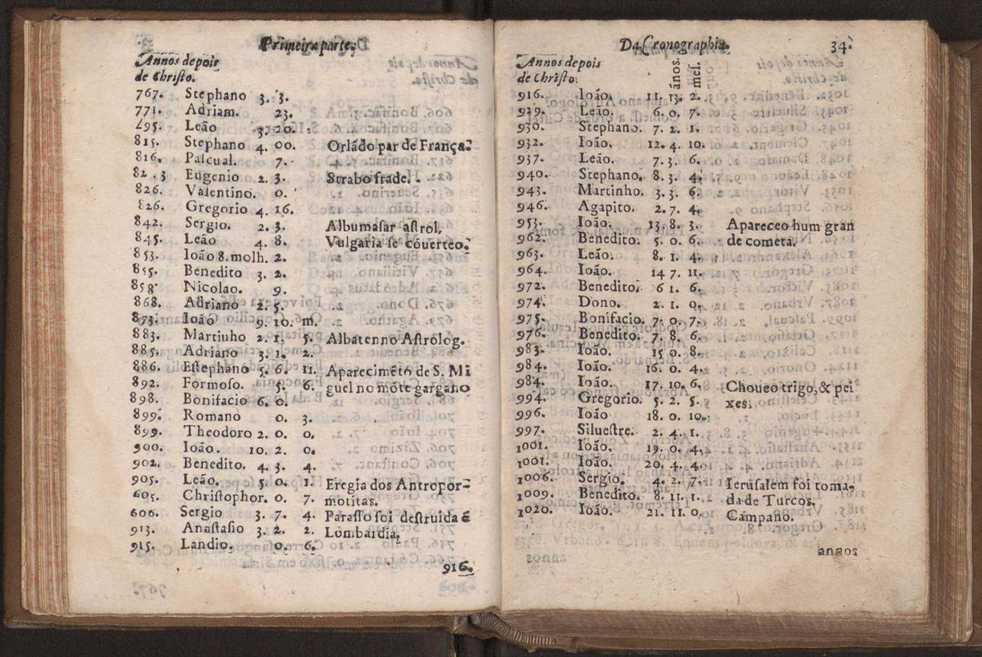 Primeira parte.
Annos depois
de Christo.
767. Stephano 3. 3.
771. Adriam. 23.
795. Leão 3. 20.
815. Stephano 4. 00. Orlãdo par de França.
816. Pascual. 7.
82.3 Eugenio 2. 3. Strabo frade.
826. Valentino. 0.
826. Gregorio 4. 16.
842. Sergio. 2. 3. Albumasar astrol.
845. Leão 4. 8. Vulgaria se cõuerteo.
853. Ioão 8. molh. 2.
855. Benedito 3. 2.
858. Nicolao. 9.
868. Adriano 2. 5.
873. Ioão 9. 10. m.
883. Martinho 2. 1. 5. Albatenno Astrolog.
885. Adriano 3. 1. 2.
886. Estephano 5. 6. 11. Aparecimẽto de S. Mi
892. Formoso. 5. 6. guel no mõte gargano
898. Bonifacio 6. 0.
899. Romano 0. 3.
899. Theodoro 2. 0. 0.
900. Ioão. 10. 2. 0.
902. Benedito. 4. 3. 4.
905. Leão. 5. 0. 1. Eregia dos Antropor-
605. Christophor. 0. 7. motitas.
606. Sergio 3. 7. 4. Parasso foi destruida ẽ
913. Anastasio 3. 2. 2. Lombardia.
915. Landio. 0. 6.
916.
Da Cronographia. 34
Annos depois
de Christo.
ános.
mes.
916. Ioão. 11. 13. 2.
929. Leão. 6. 0. 7.
930. Stephano. 7. 2. 1.
932. Ioão. 12. 4. 10.
937. Leão. 7. 3. 6.
940. Stephano. 8. 3. 4.
943. Martinho. 3. 3. 6.
946. Agapito. 2. 7. 4.
953. Ioão. 13. 8. 3. Apareceo hum gran
962. Benedito. 5. 0. 6. de cometa.
963. Leão. 8. 1. 4.
964. Ioão. 14 7. 11.
972. Benedito. 6 1. 6.
974. Dono. 2. 1. 0.
975. Bonifacio. 7. 0. 7.
976. Benedito. 7. 8. 6.
983. Ioão. 15 0. 8.
984. Ioão. 16. 0. 4.
984. Ioão. 17. 10. 6. Choueo trigo, & pei
994. Gregorio. 5. 2. 5. xes.
996. Ioão 18. 0. 10.
997. Siluestre. 2. 4. 1.
1001. Ioão. 19. 0. 4.
1001. Ioão. 20. 4. 4.
1006. Sergio. 4. 2. 7. Ierusalem foi toma-
1009. Benedito. 8. 11. 1. da de Turcos.
1020. Ioão. 21. 11. 0. Campano.
annos